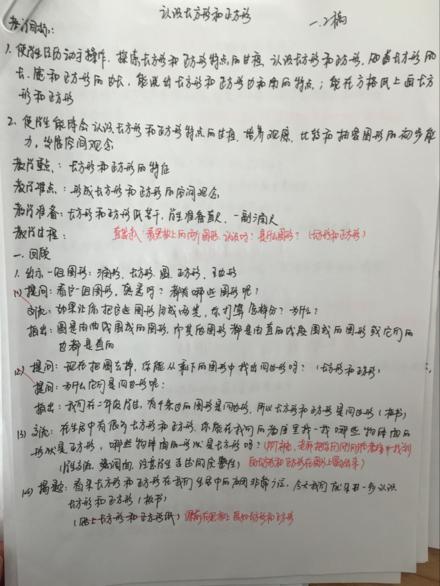 认识长方形和正方形
一、2稿
教学目标:
1. 使学生经历动手操作、探索长方形和正方形特点的过程,认识长方形和正方形,知道长方形的
长、宽和正方形的边长,能说出长方形和正方形边和角的特点;能在方格纸上画长方
形和正方形
2. 使学生能体会认识长方形和正方形特点的过程,培养观察、比较和抽象图形的初步能
力,发展空间观念
教学重点:长方形和正方形的特征
教学难点:形成长方形和正方形的空间观念
教学准备:长方形和正方形纸若干,学生准备直尺、一副三角尺
教学过程:
看黑板上的两个图形,认识吗?是什么图形?(长方形和正方形)
一、回顾
1. 出示一组图形:三角形、长方形、圆、正方形、五边形
(1) 提问:看这一组图形,熟悉吗?都有哪些图形呢?
交流:如果让你把这些图形分成两类,你打算怎样分?为什么?
指出:圆是由曲线围成的图形,而其他图形都是由直的线段围成的图形或它们的
边都是直的
(2) 提问:现在把圆去掉,你能从剩下的图形中找出四边形吗?(长方形和正方形)
提问:为什么它们是四边形呢?
指出:我们在二年级学过,有4条边的图形是四边形,所以长方形和正方形是四边形(板书)
(3) 交流:在生活中有很多长方形和正方形,你能在我们的教室里找一找哪些物体面的
形状是正方形,哪些物体面的形状是长方形吗?
(学生交流,强调面,注意学生表述的完整性)
(4) 揭题:看来长方形和正方形在我们生活中的应用非常广泛,今天我们就来进一步认识
长方形和正方形(板书)
(贴上长方形和正方形纸)